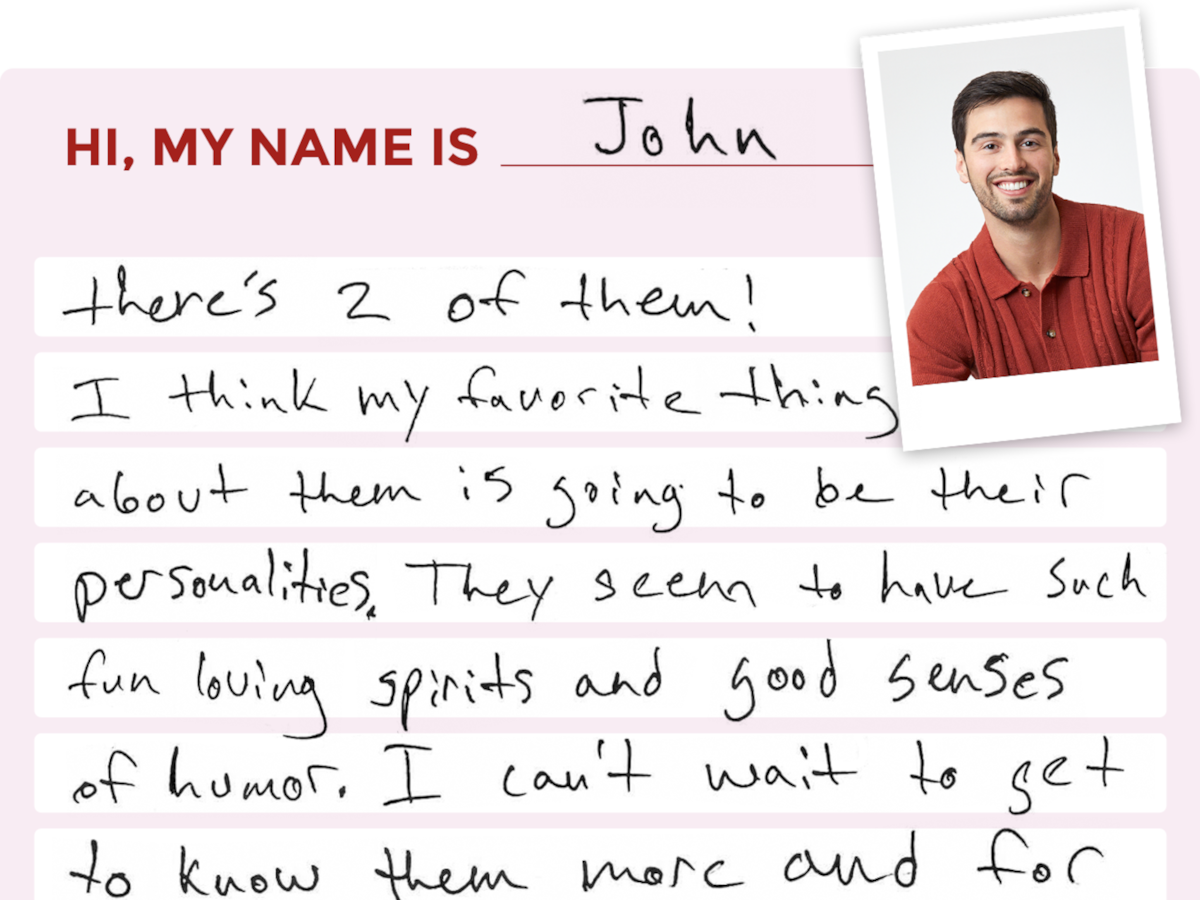 HI, MY NAME IS John
there's 2 of them!
I think my favorite thing
about them is going to be their
personalities. They seem to have such
fun loving spirits and good senses
of humor. I can't wait to get
to know them more and for